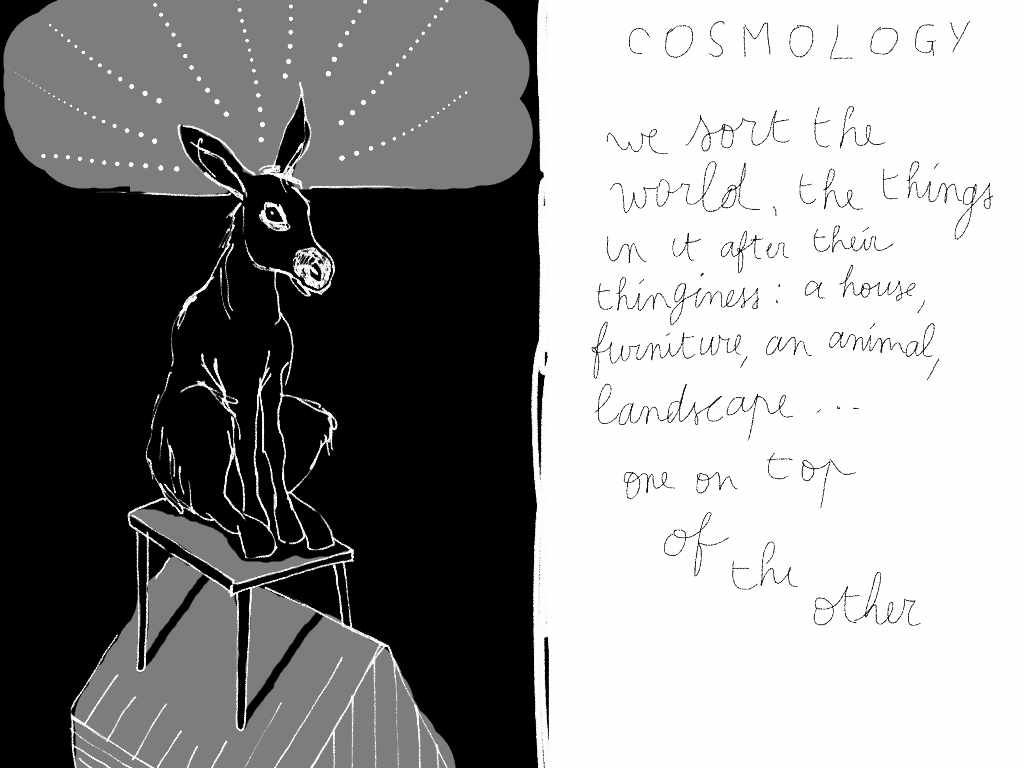 COSMOLOGY
we sort the
world, the things
in it after their
thinginess: a house,
furniture, an animal,
landscape ...
one on top
of
the
other